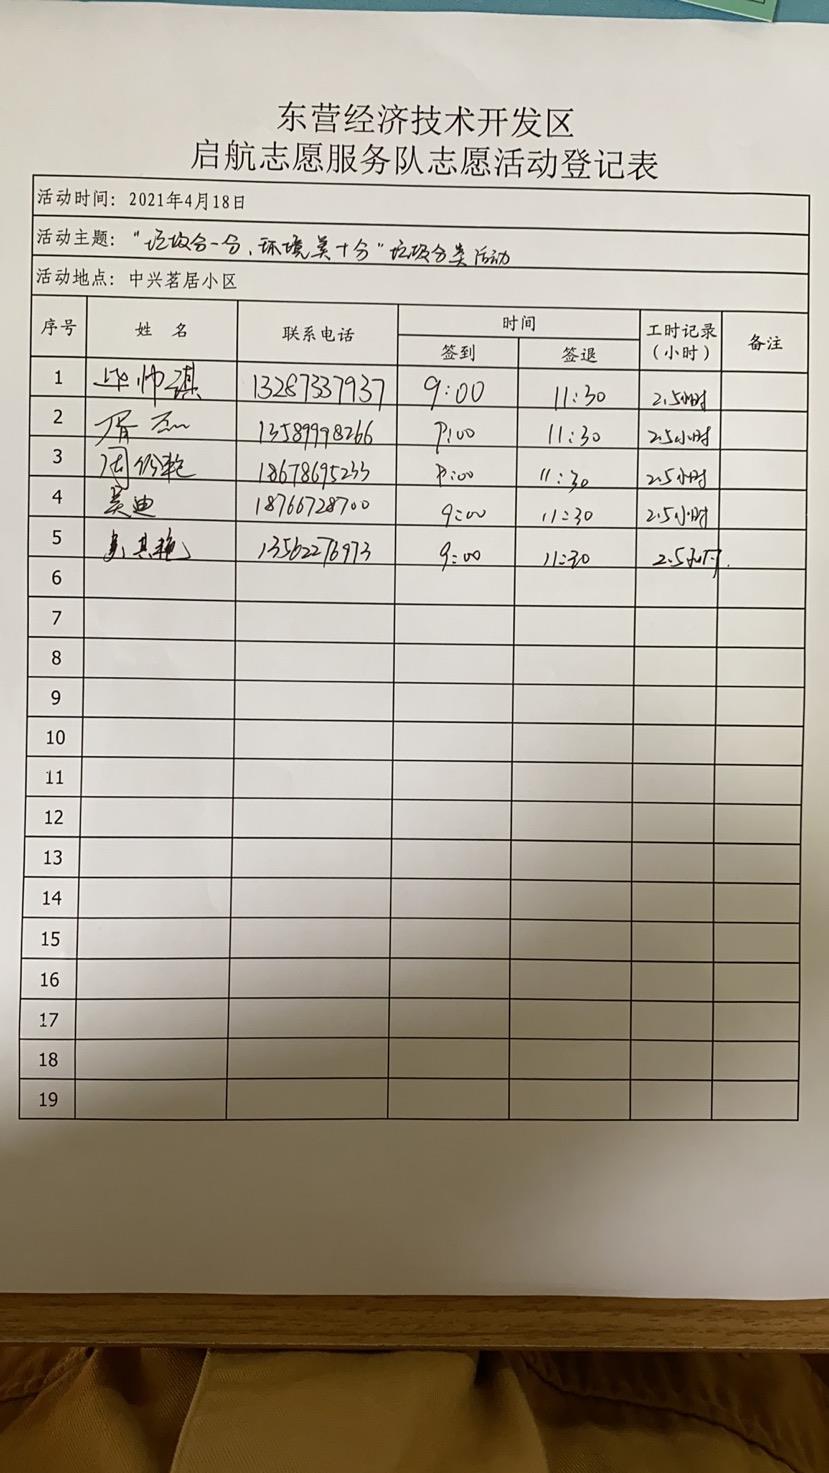 东营经济技术开发区
启航志愿服务队志愿活动登记表
活动时间：2021年4月18日
活动主题："垃圾分一分，环境美十分"垃圾分类活动
活动地点：中兴茗居小区
序号 姓 名 联系电话 时间 签到 签退 工时记录（小时） 备注
1 毕帅祺 13287337937 9:00 11:30 2.5小时
2 13589998266 9:00 11:30 2.5小时
3 18678695233 9:00 11:30 2.5小时
4 吴迪 18766728700 9:00 11:30 2.5小时
5 13562276973 9:00 11:30 2.5小时
6
7
8
9
10
11
12
13
14
15
16
17
18
19